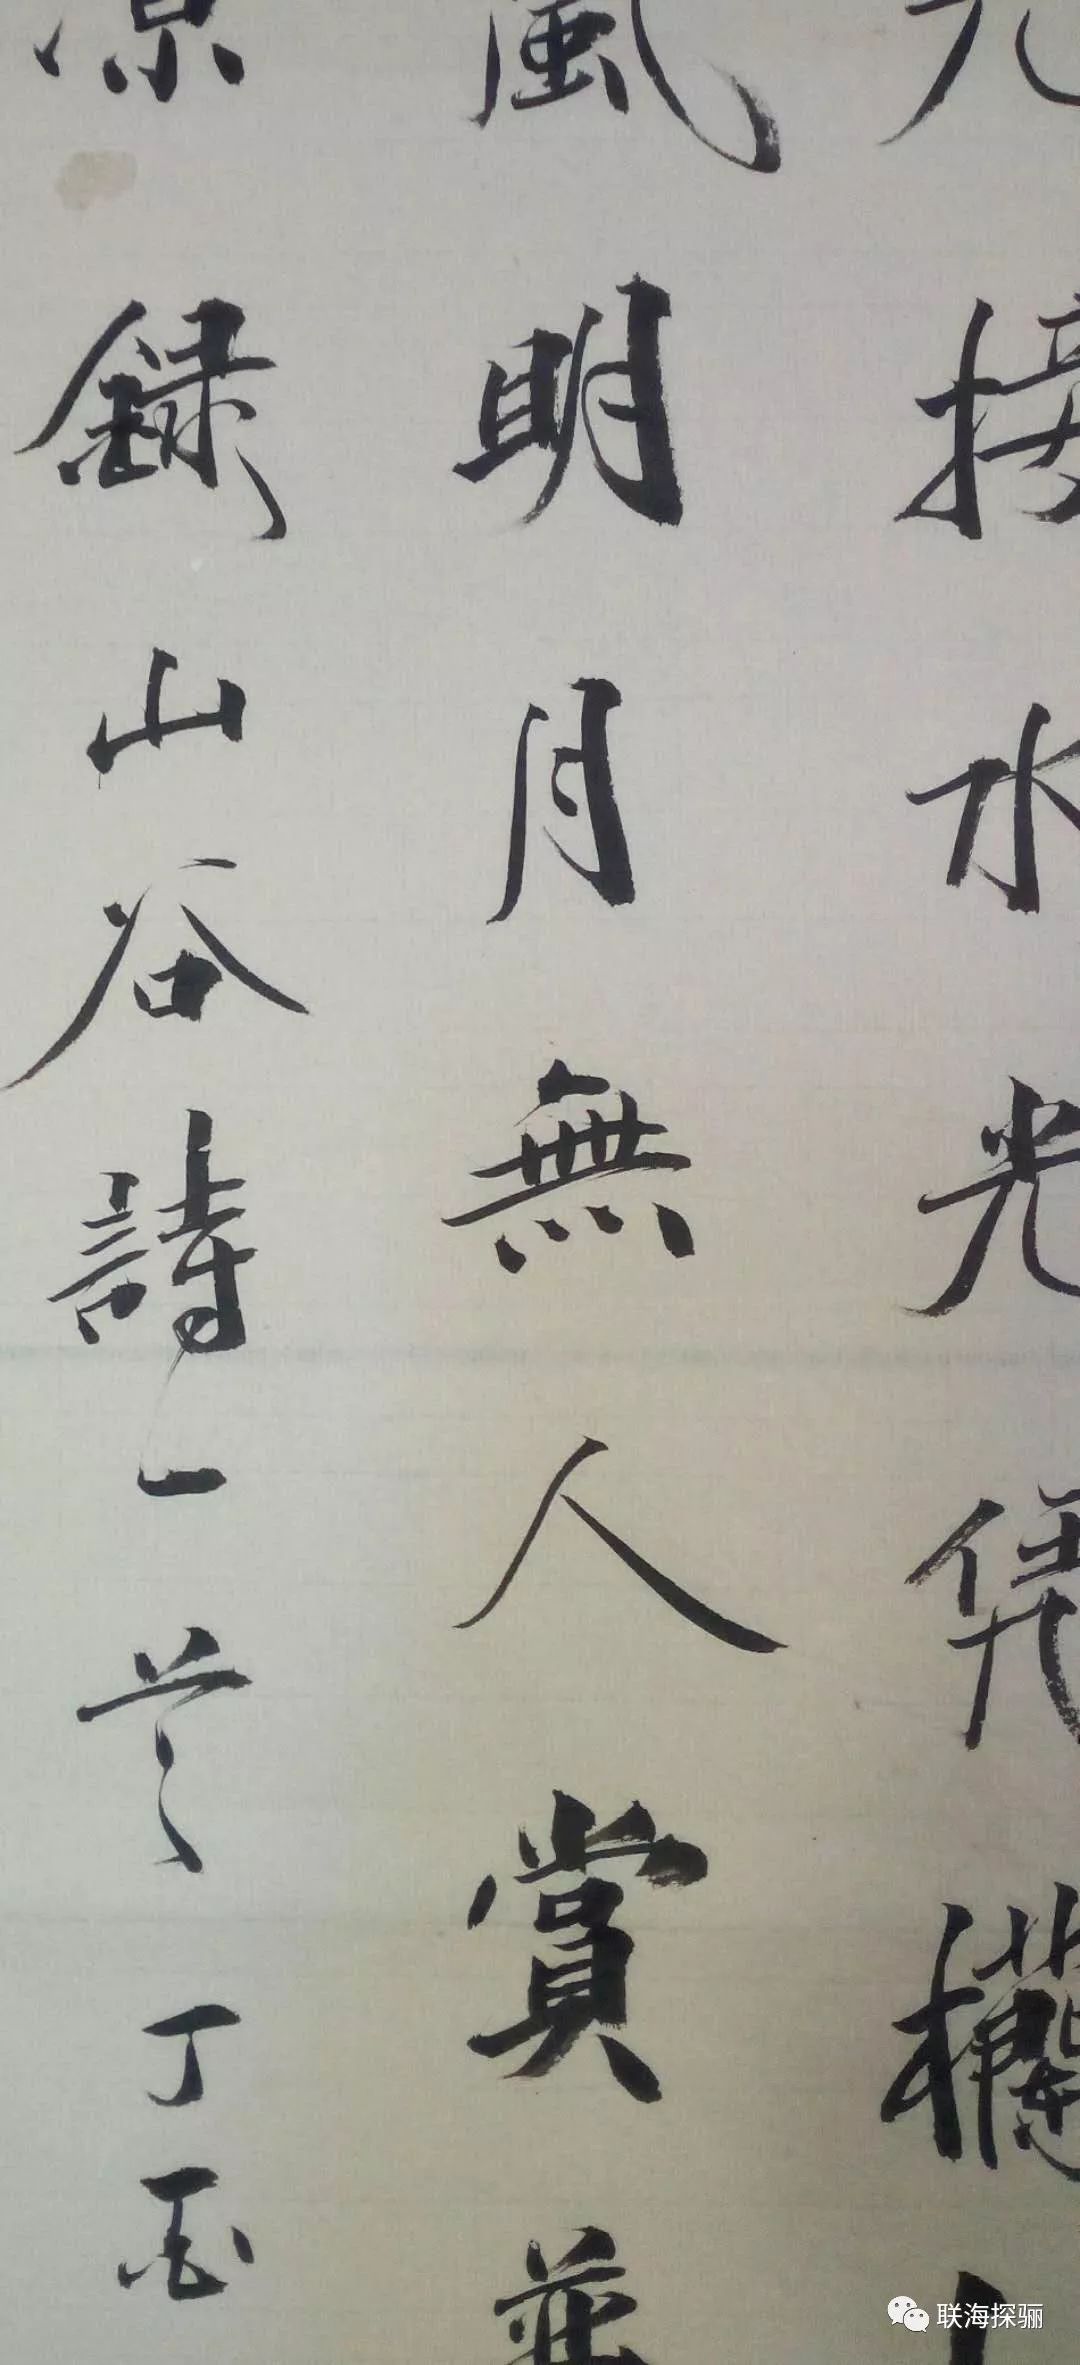 光接水光凭欄
風明月無人賞並
凉録山谷詩一首丁酉
联海探骊